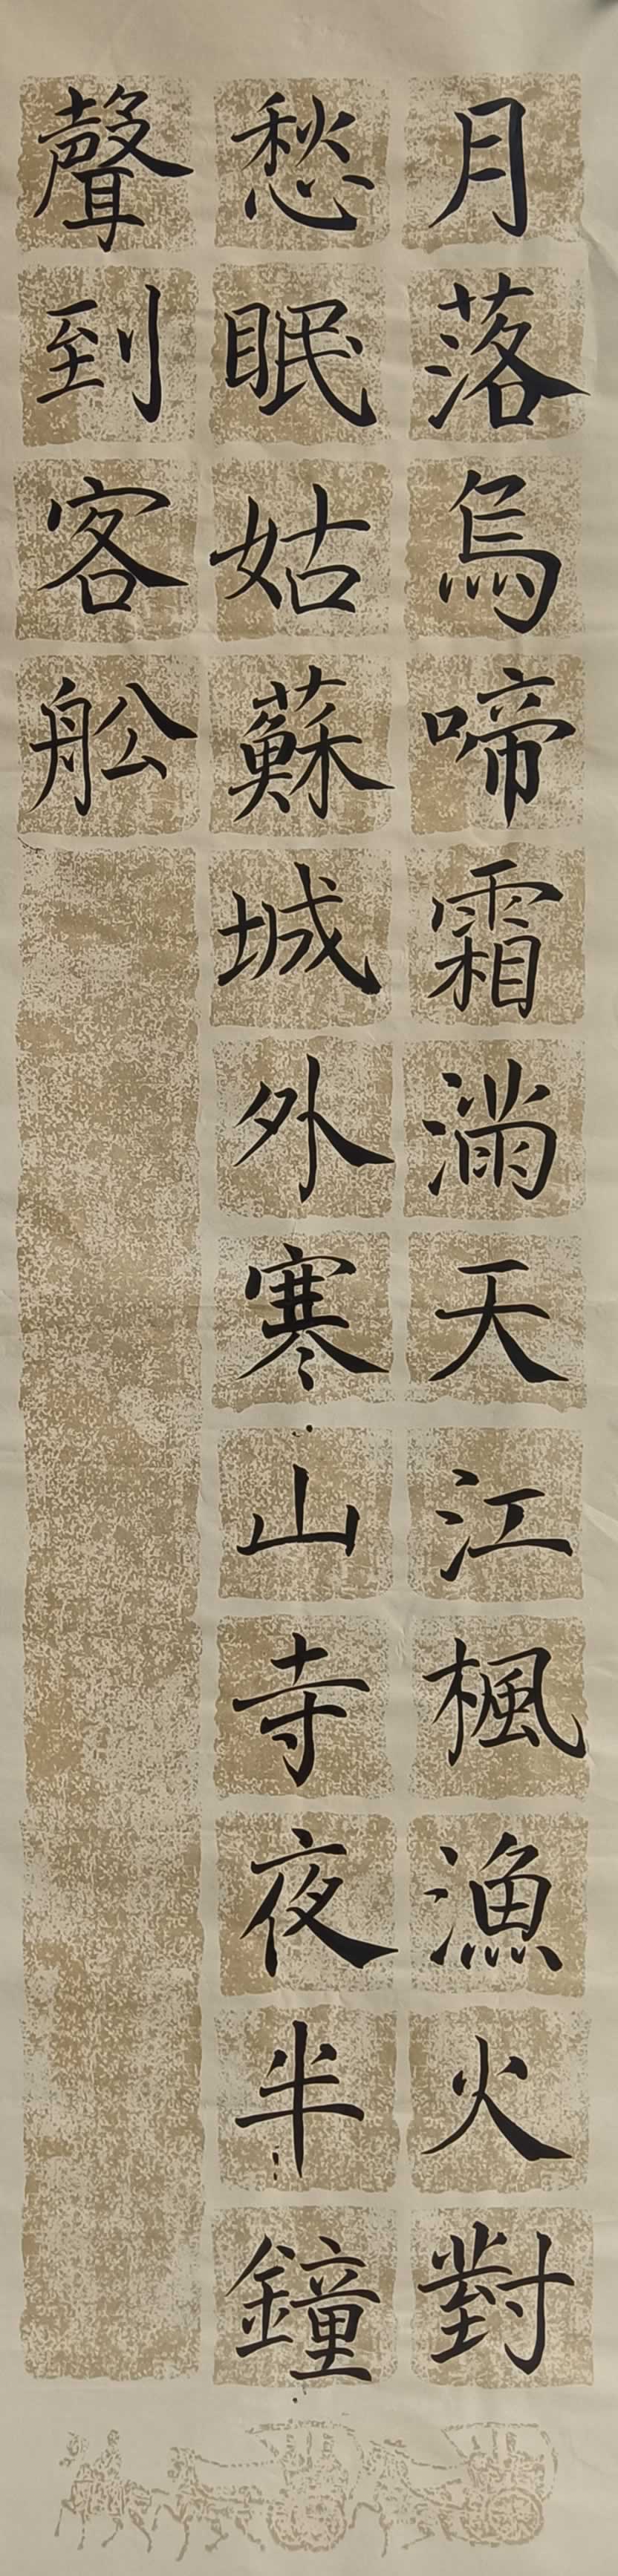 月落烏啼霜滿天江楓漁火對
愁眠姑蘇城外寒山寺夜半鐘
聲到客舩